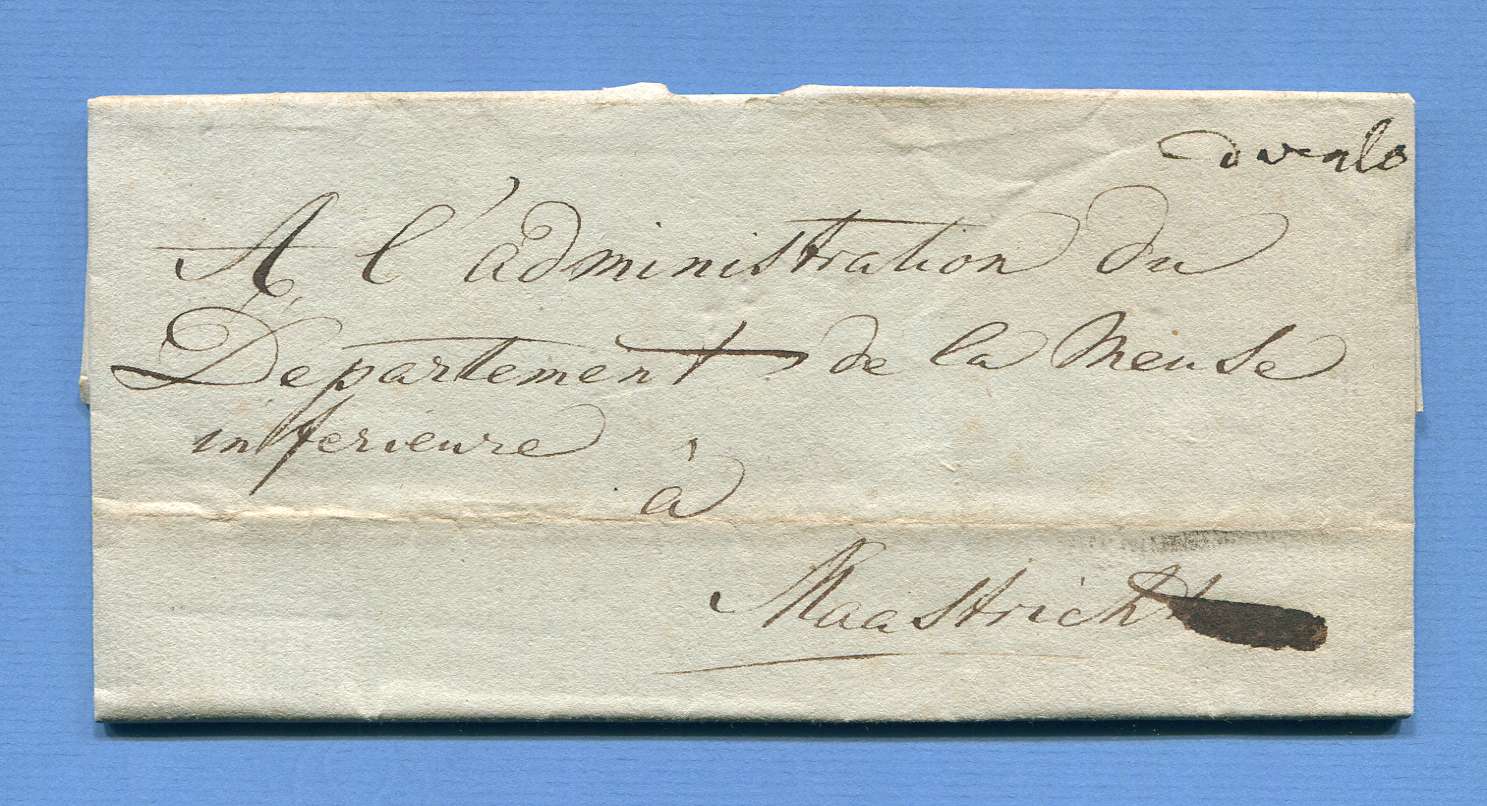 d venlo
A l'administration du
Departement de la Meuse
inferieure
à
Maastricht